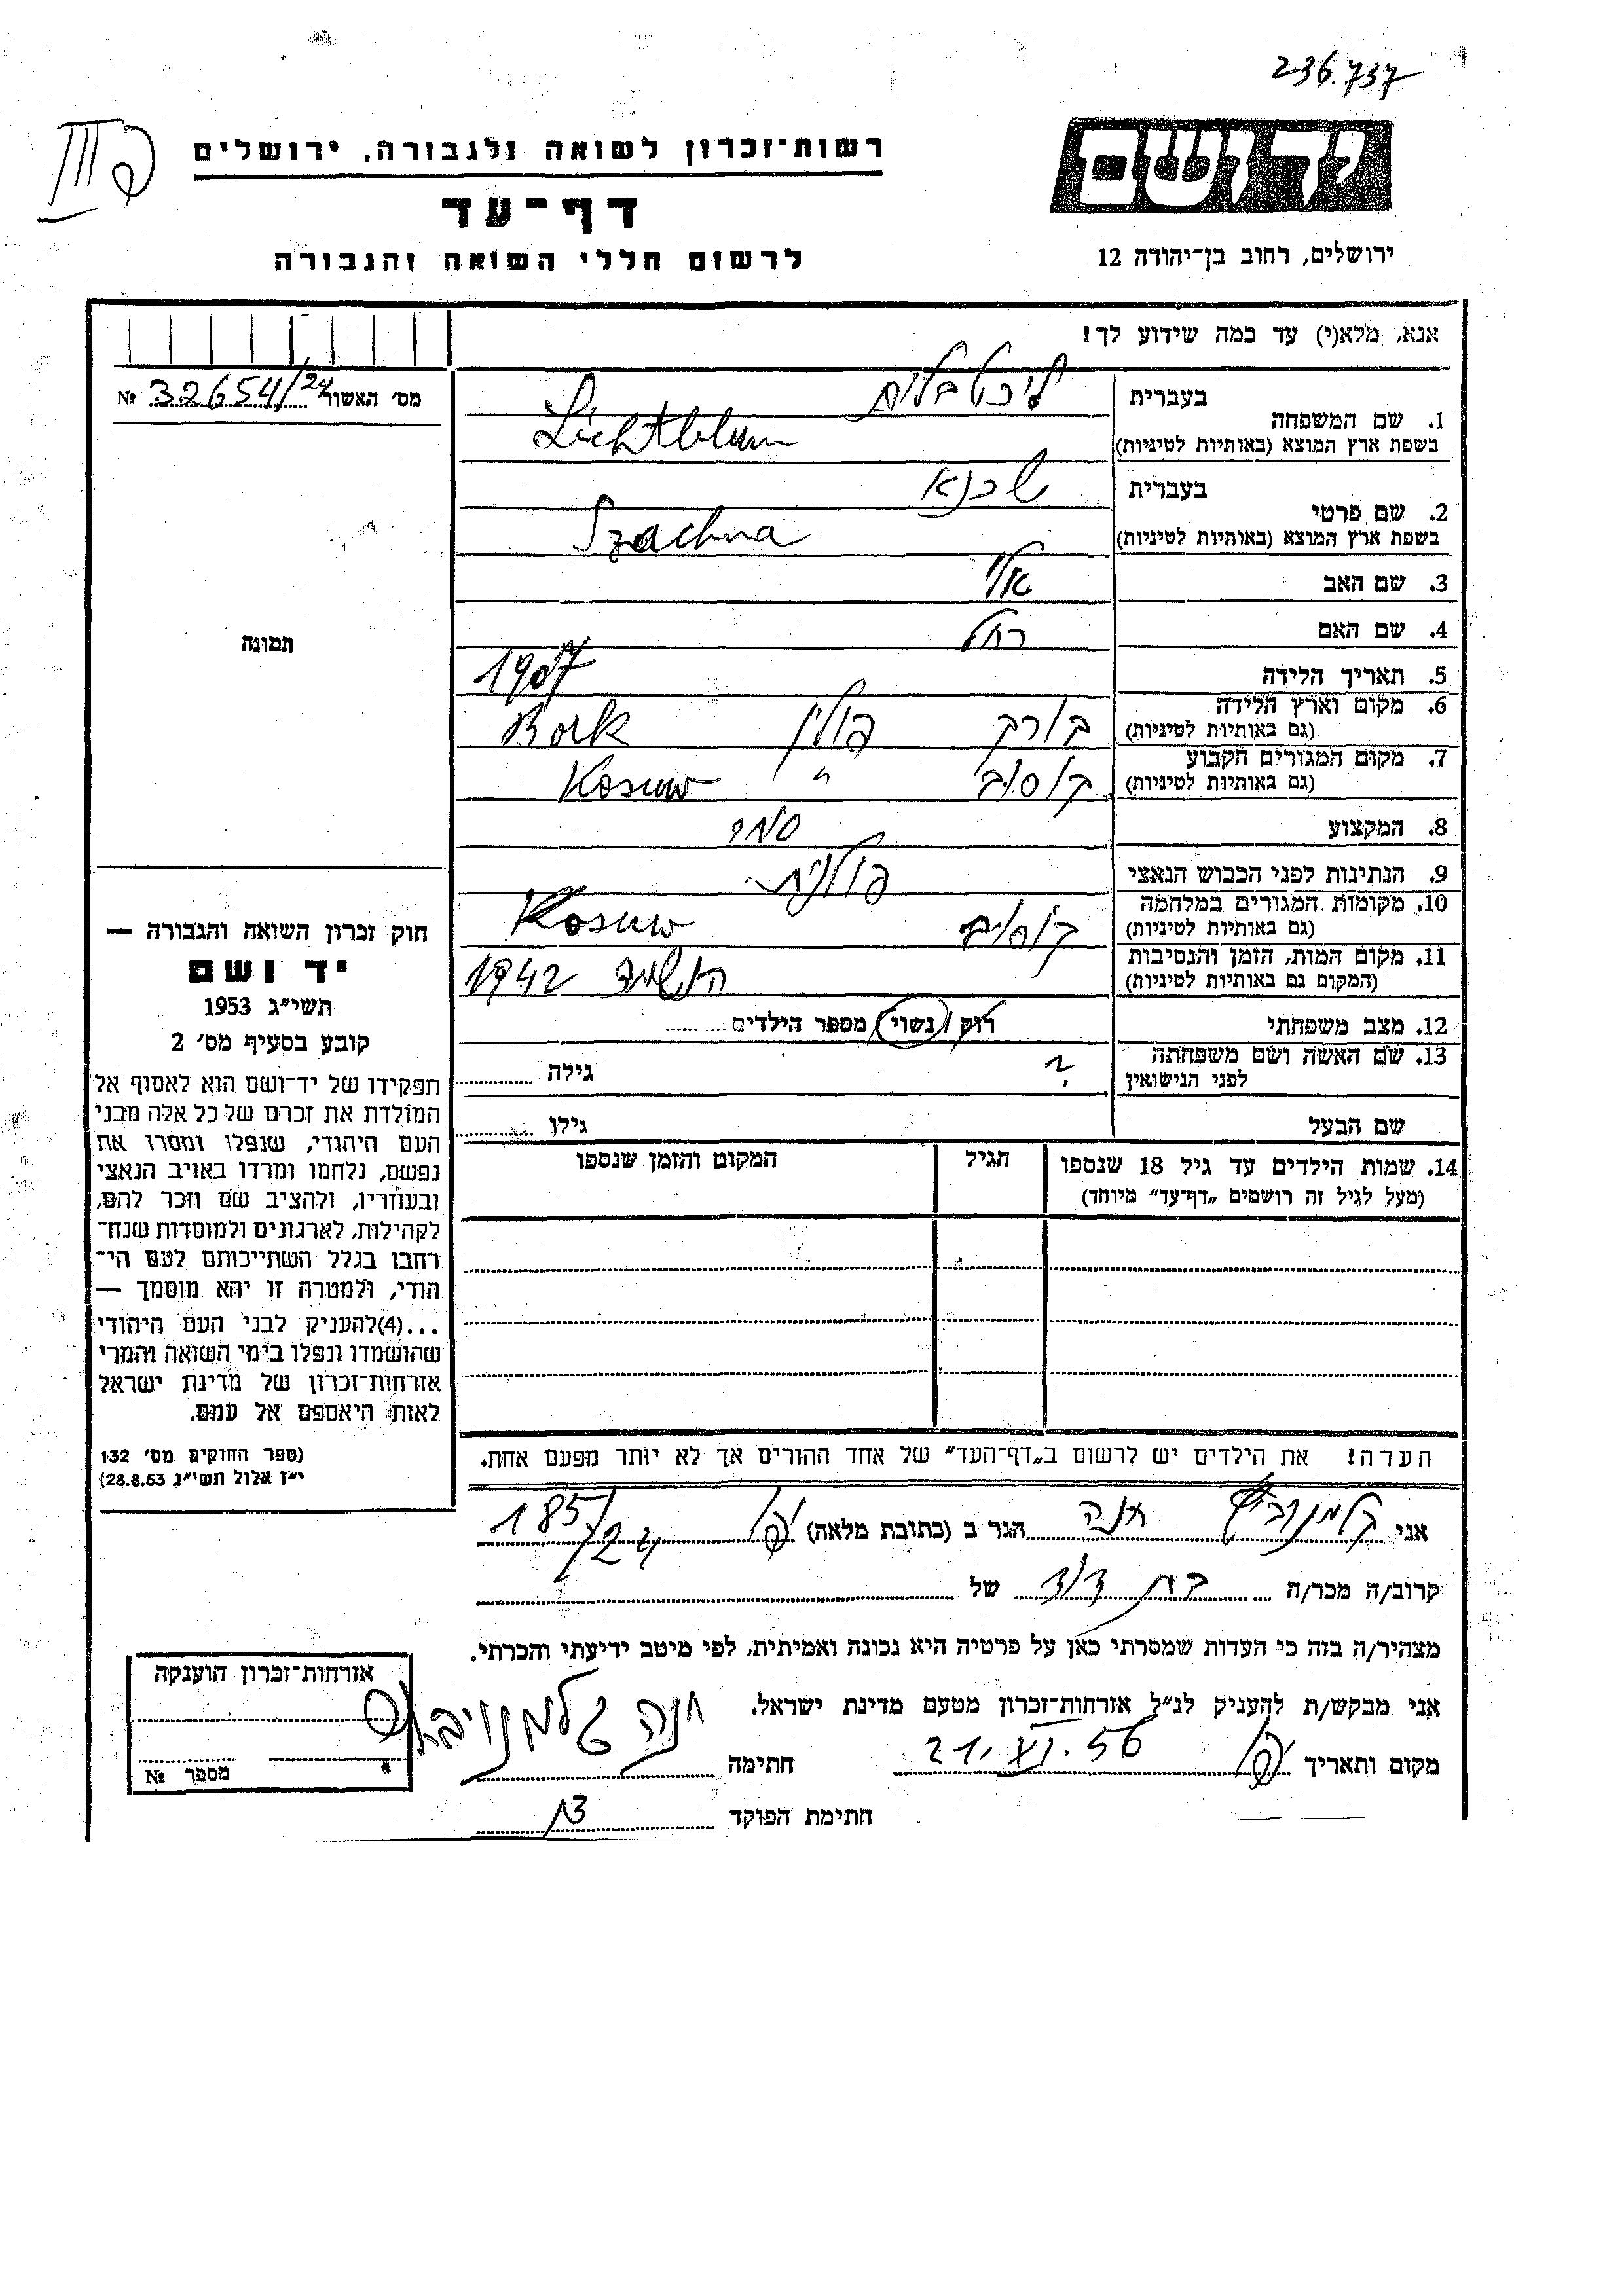 236.737
רשות־זכרון לשואה ולגבורה, ירושלים
דף־עד
לרשום חללי השואה והגבורה
יד ושם
ירושלים, רחוב בן־יהודה 12
III
אנא, מלא(י) עד כמה שידוע לך!
מס׳ האשור 32654/24 №
תמונה
1. שם המשפחה בעברית ליכטבלום
בשפת ארץ המוצא (באותיות לטיניות) Lichtblum
2. שם פרטי בעברית שכנא
בשפת ארץ המוצא (באותיות לטיניות) Szachna
3. שם האב אלי
4. שם האם רחל
5. תאריך הלידה 1907
6. מקום וארץ הלידה (גם באותיות לטיניות) בורק פולין Bork
7. מקום המגורים הקבוע (גם באותיות לטיניות) קוסוב " Kosuw
8. המקצוע סוחר
9. הנתינות לפני הכבוש הנאצי פולנית
10. מקומות המגורים במלחמה (גם באותיות לטיניות) Kosuw
11. מקום המות, הזמן והנסיבות (המקום גם באותיות לטיניות) 1942
12. מצב משפחתי רוק / נשוי / מספר הילדים
13. שם האשה ושם משפחתה לפני הנישואין ? גילה
שם הבעל גילו
14. שמות הילדים עד גיל 18 שנספו (מעל לגיל זה רושמים „דף־עד״ מיוחד) הגיל המקום והזמן שנספו
הערה! את הילדים יש לרשום ב„דף־העד״ של אחד ההורים אך לא יותר מפעם אחת.
חוק זכרון השואה והגבורה —
יד ושם
תשי״ג 1953
קובע בסעיף מס׳ 2
תפקידו של יד־ושם הוא לאסוף אל
המולדת את זכרם של כל אלה מבני
העם היהודי, שנפלו ומסרו את
נפשם, נלחמו ומרדו באויב הנאצי
ובעוזריו, ולהציב שם וזכר להם,
לקהילות, לארגונים ולמוסדות שנח־
רבו בגלל השתייכותם לעם הי־
הודי, ולמטרה זו יהא מוסמך —
...(4)להעניק לבני העם היהודי
שהושמדו ונפלו בימי השואה והמרי
אזרחות־זכרון של מדינת ישראל
לאות היאספם אל עמם.
(ספר החוקים מס׳ 132
י״ז אלול תשי״ג 28.8.53)
אני חנה הגר ב (כתובת מלאה) 185/24
קרוב/ה מכר/ה בת דוד של
מצהיר/ה בזה כי העדות שמסרתי כאן על פרטיה היא נכונה ואמיתית, לפי מיטב ידיעתי והכרתי.
אני מבקש/ת להעניק לנ״ל אזרחות־זכרון מטעם מדינת ישראל.
מקום ותאריך 21.XI.56 חתימה חנה
חתימת הפוקד
אזרחות־זכרון הוענקה
מספר №